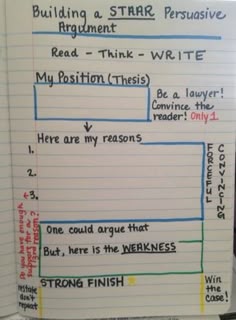 Building a STAAR Persuasive
Argument
Read - Think - WRITE
My Position (Thesis)
Be a lawyer!
Convince the
reader! Only 1
Here are my reasons
1.
2.
3.
FORCEFUL
CONVINCING
Do you have enough
support for a
reason?
One could argue that
But, here is the WEAKNESS
STRONG FINISH
Restate
don't
repeat
Win
the
Case!